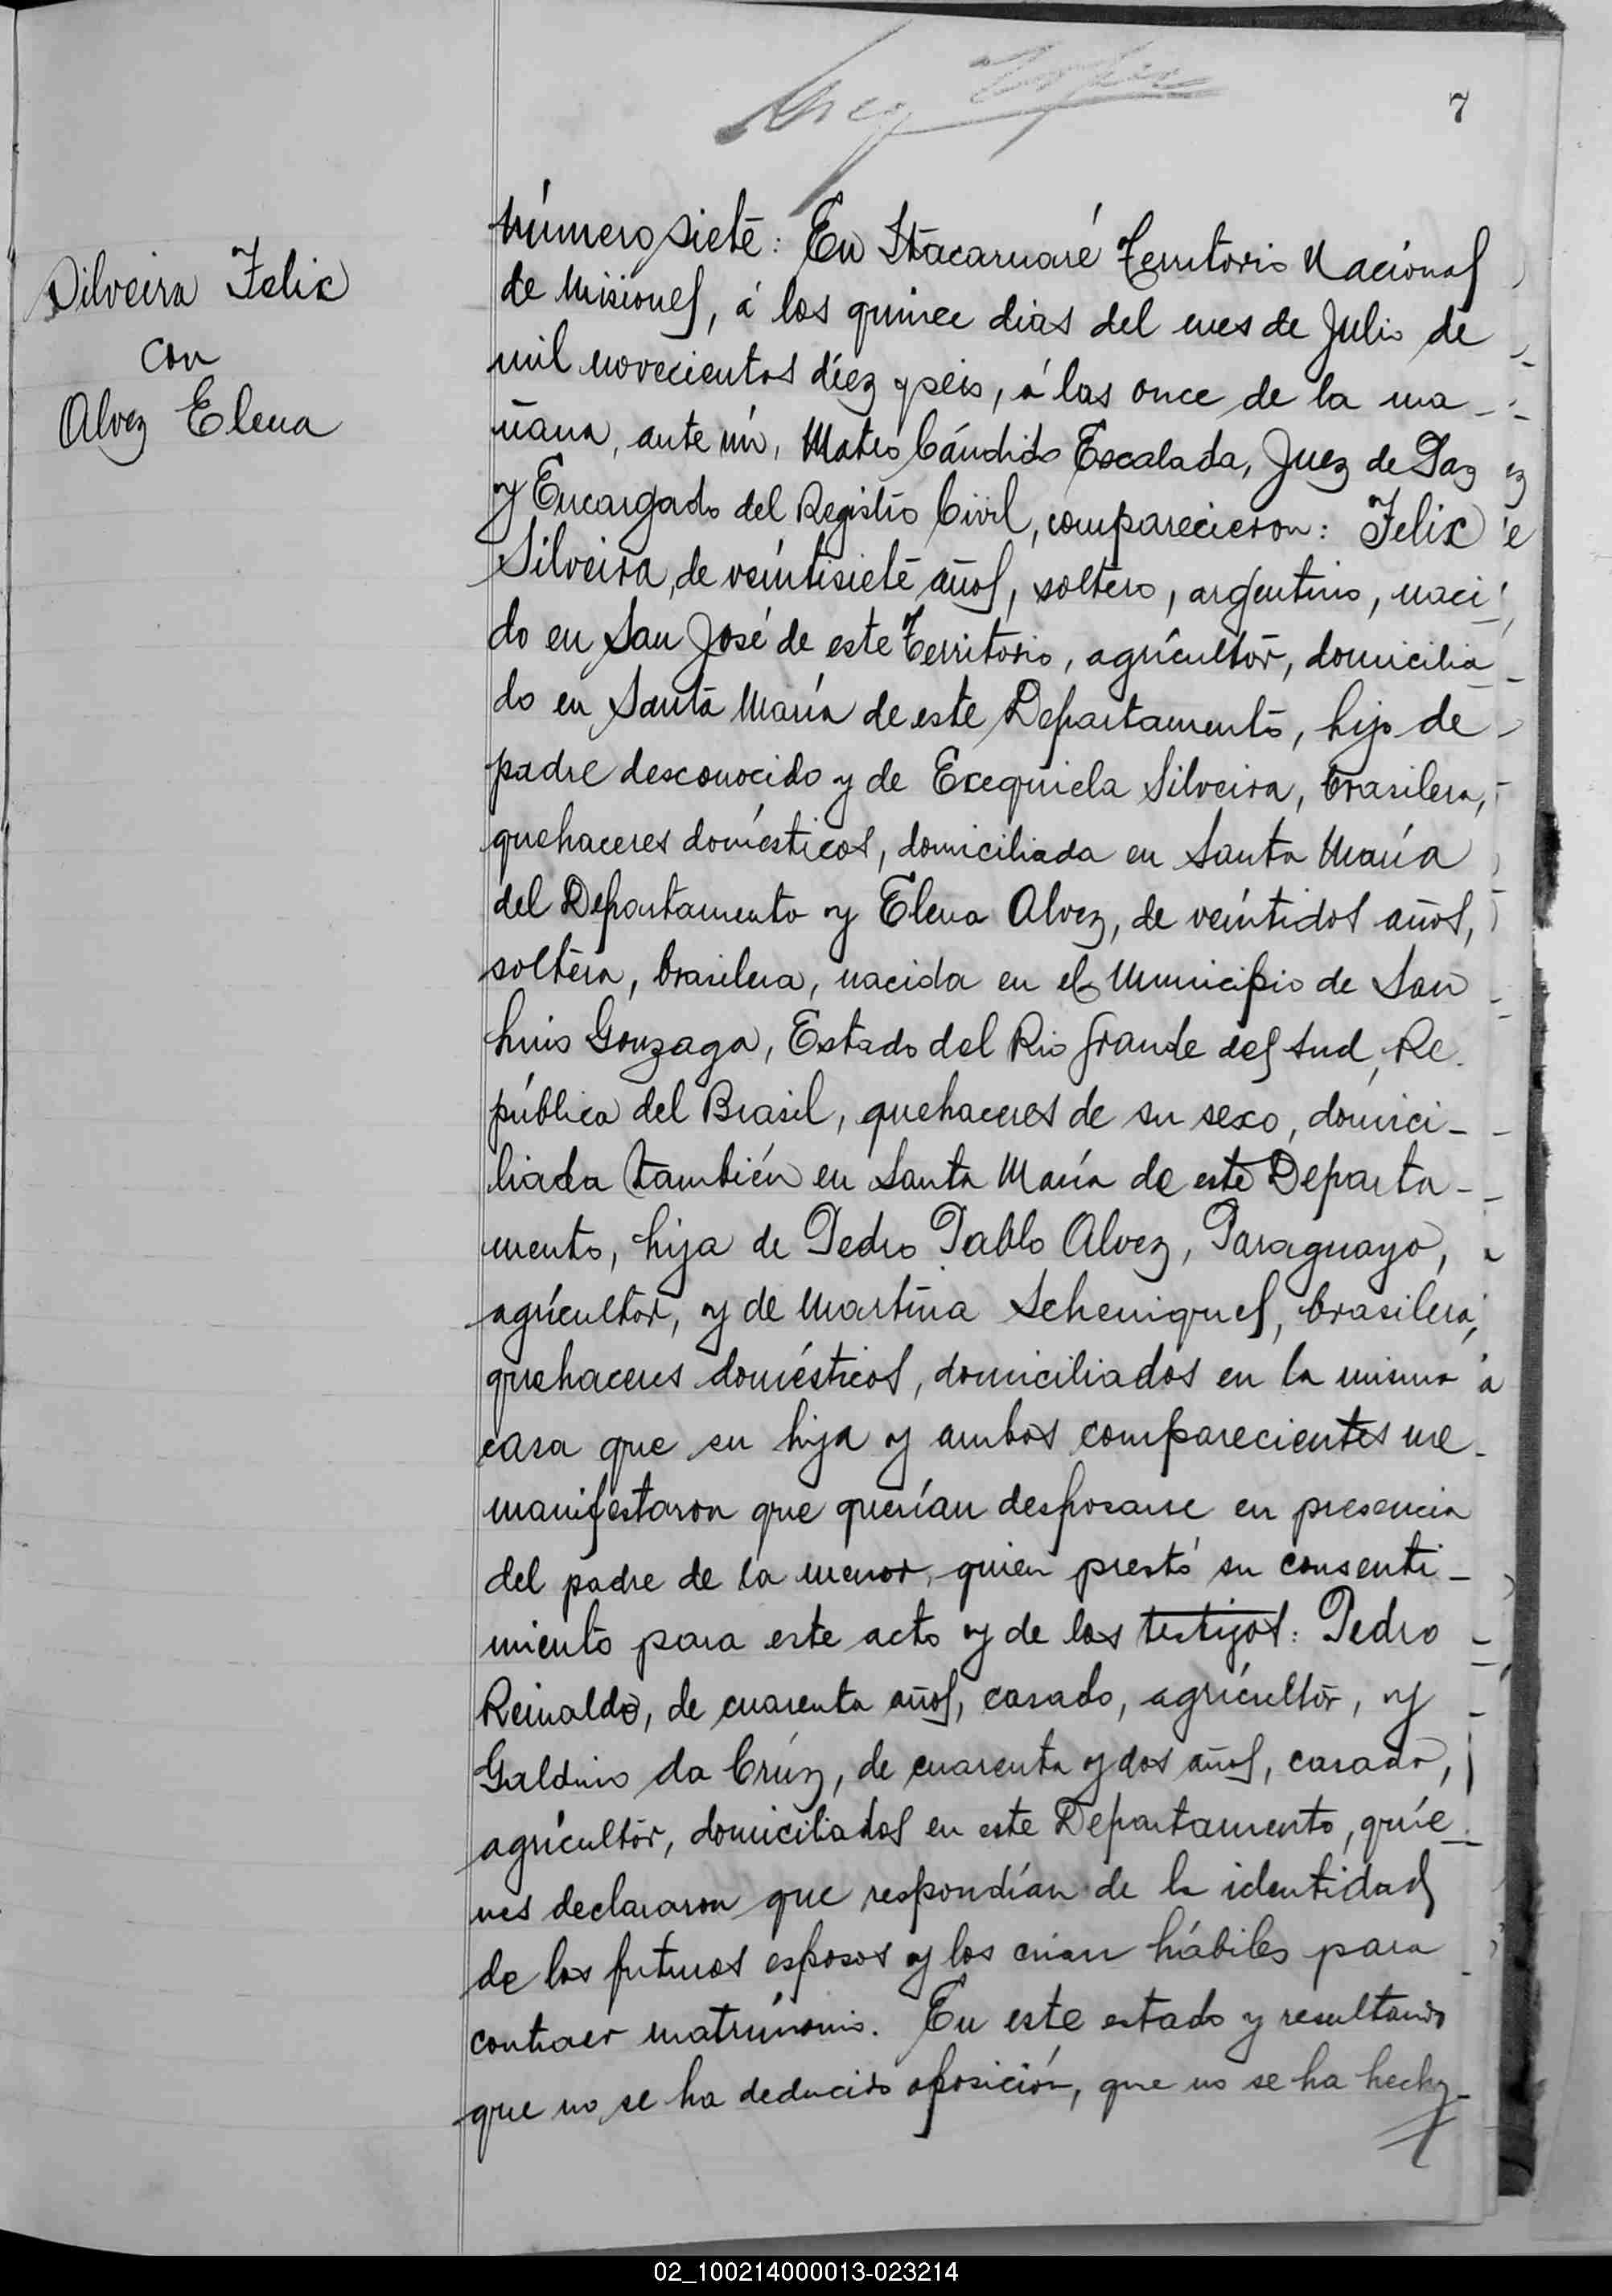 7
Silveira Felix
con
Alvez Elena
Número siete: En Itacaruaré Territorio Nacional
de Misiones, á los quince dias del mes de Julio de
mil novecientos diez y seis, á las once de la ma-
ñana, ante mí, Mateo Cándido Escalada, Juez de Paz
y Encargado del Registro Civil, comparecieron: Felix
Silveira, de veintisiete años, soltero, argentino, naci
do en San José de este Territorio, agricultor, domicilia
do en Santa María de este Departamento, hijo de
padre desconocido y de Exequiela Silveira, brasilera,
quehaceres domésticos, domiciliada en Santa María
del Departamento y Elena Alvez, de veintidos años,
soltera, brasilera, nacida en el Municipio de San
Luis Gonzaga, Estado del Rio Grande del Sud, Re-
pública del Brasil, quehaceres de su sexo, domici-
liada también en Santa María de este Departa-
mento, hija de Pedro Pablo Alvez, Paraguayo,
agricultor, y de Martina Scheniques, brasilera,
quehaceres domésticos, domiciliados en la misma
casa que su hija y ambos comparecientes me
manifestaron que querían desposarse en presencia
del padre de la menor, quien prestó su consenti-
miento para este acto y de los testigos: Pedro
Reinaldo, de cuarenta años, casado, agricultor, y
Galdino da Crúz, de cuarenta y dos años, casado,
agricultor, domiciliados en este Departamento, quie-
nes declararon que respondían de la identidad
de los futuros esposos y los creían hábiles para
contraer matrimonio. En este estado y resultando
que no se ha deducido oposición, que no se ha hecho
02_100214000013-023214